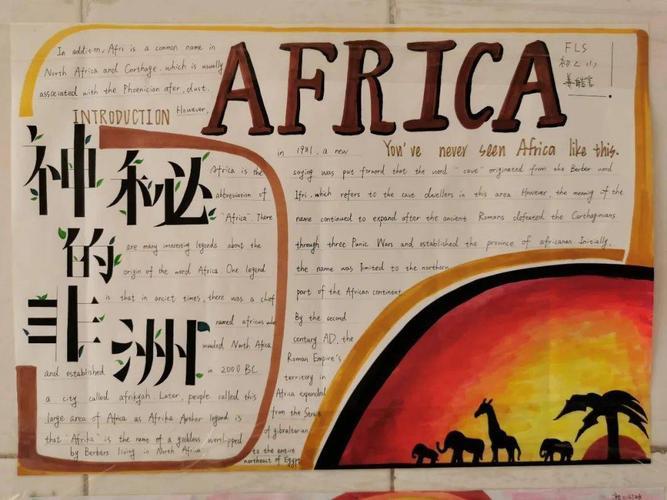 AFRICA
FLS
初二(1)
In addition, Afri is a common name in
North Africa and Carthage, which is usually
associated with the Phoenician afer, dust.
However,
INTRODUCTION
神秘
的
非洲
Africa is the
abbreviation of
Africa" There
are many interesting legends about the
origin of the word Africa. One legend
is that in anciet times, there was a chief
named africus who
invaded North Africa
and established in 2000 BC
a city called afrikyah. Later, people called this
large area of Africa as Afrika Another legend is
that "Afrika" is the name of a goddess worshipped
by Berbers living in North Africa
You've never seen Africa like this.
in 1981, a new
saying was put forward that the word "cave" originated from the Berber word
Ifri, which refers to the cave dwellers in this area However the meaning of the
name continued to expand after the ancient Romans defeated the Carthaginians
through three Punic Wars and established the province of africanas Initially,
the name was limited to the northern
part of the African continent
By the second
century AD, the
Roman Empire's
territory in
Africa expanded
from the Strait
of gibraltar
to the entire
northeast of Egypt